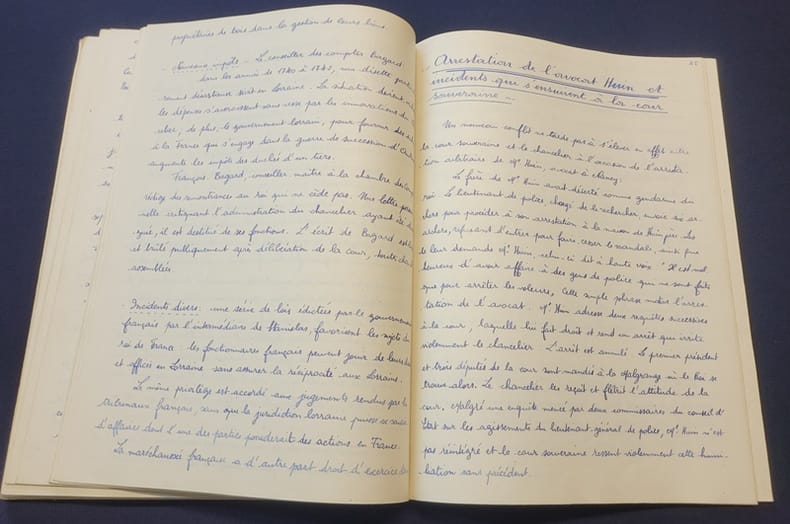 propriétaires de bois dans la gestion de leurs biens.
Nouveaux impôts - Le conseiller des comptes Bugard
dans les années de 1740 à 1742, une disette
en Lorraine. La situation devient
les dépenses s'accroissent sans cesse par les innovations du
de plus, le gouvernement lorrain, pour fournir des
à la France qui s'engage dans la guerre de succession d'
augmente les impôts des duchés d'un tiers.
François Bugard, conseiller, maître à la chambre des
rédige des remontrances au roi qui ne cède pas. Une lettre
critiquant l'administration du chancelier ayant été
il est destitué de ses fonctions. L'écrit de Bugard est
et brûlé publiquement après délibération de la cour, toutes
assemblées
Incidents divers : une série de lois édictées par le gouvernement
français par l'intermédiaire de Stanislas, favorisent les sujets du
roi de France les fonctionnaires français peuvent jouir de leurs
et offices en Lorraine sans assurer la réciprocité aux Lorrains.
Le même privilège est accordé aux jugements rendus par les
tribunaux français, sans que la juridiction lorraine puisse se
d'affaires dont l'une des parties possèderait des actions en France.
La maréchaussée française a d'autre part droit d'exercice
25
Arrestation de l'avocat Hun et
incidents qui s'ensuivent à la cour
souveraine -
Un nouveau conflit ne tarde pas à s'élever en effet entre
la cour souveraine et le chancelier à l'occasion de l'arresta-
tion arbitraire de Mr Hun, avocat à Nancy.
Le frère de Mr Hun avait déserté comme gendarme du
roi. Le lieutenant de police, chargé de le rechercher, envoie six ar-
chers pour procéder à son arrestation à la maison de Hun père. Les
archers, refusant d'entrer pour faire cesser le scandale, ainsi que
le leur demande Mr Hun, celui-ci dit à haute voix "Il est mal-
heureux d'avoir affaire à des gens de police qui ne sont faits
que pour arrêter les voleurs. Cette simple phrase motive l'arres-
tation de l'avocat. Mr Hun adresse deux requêtes successives
à la cour, laquelle lui fait droit et rend un arrêt qui irrite
violemment le chancelier. L'arrêt est annulé. Le premier président
et trois députés de la cour sont mandés à la Malgrange où le Roi se
trouve alors. Le chancelier les reçoit et flétrit l'attitude de la
cour. Malgré une enquête menée par deux commissaires du conseil d'
Etat sur les agissements du lieutenant-général de police, Mr Hun n'est
pas réintégré et la cour souveraine ressent violemment cette humi-
liation sans précédent.